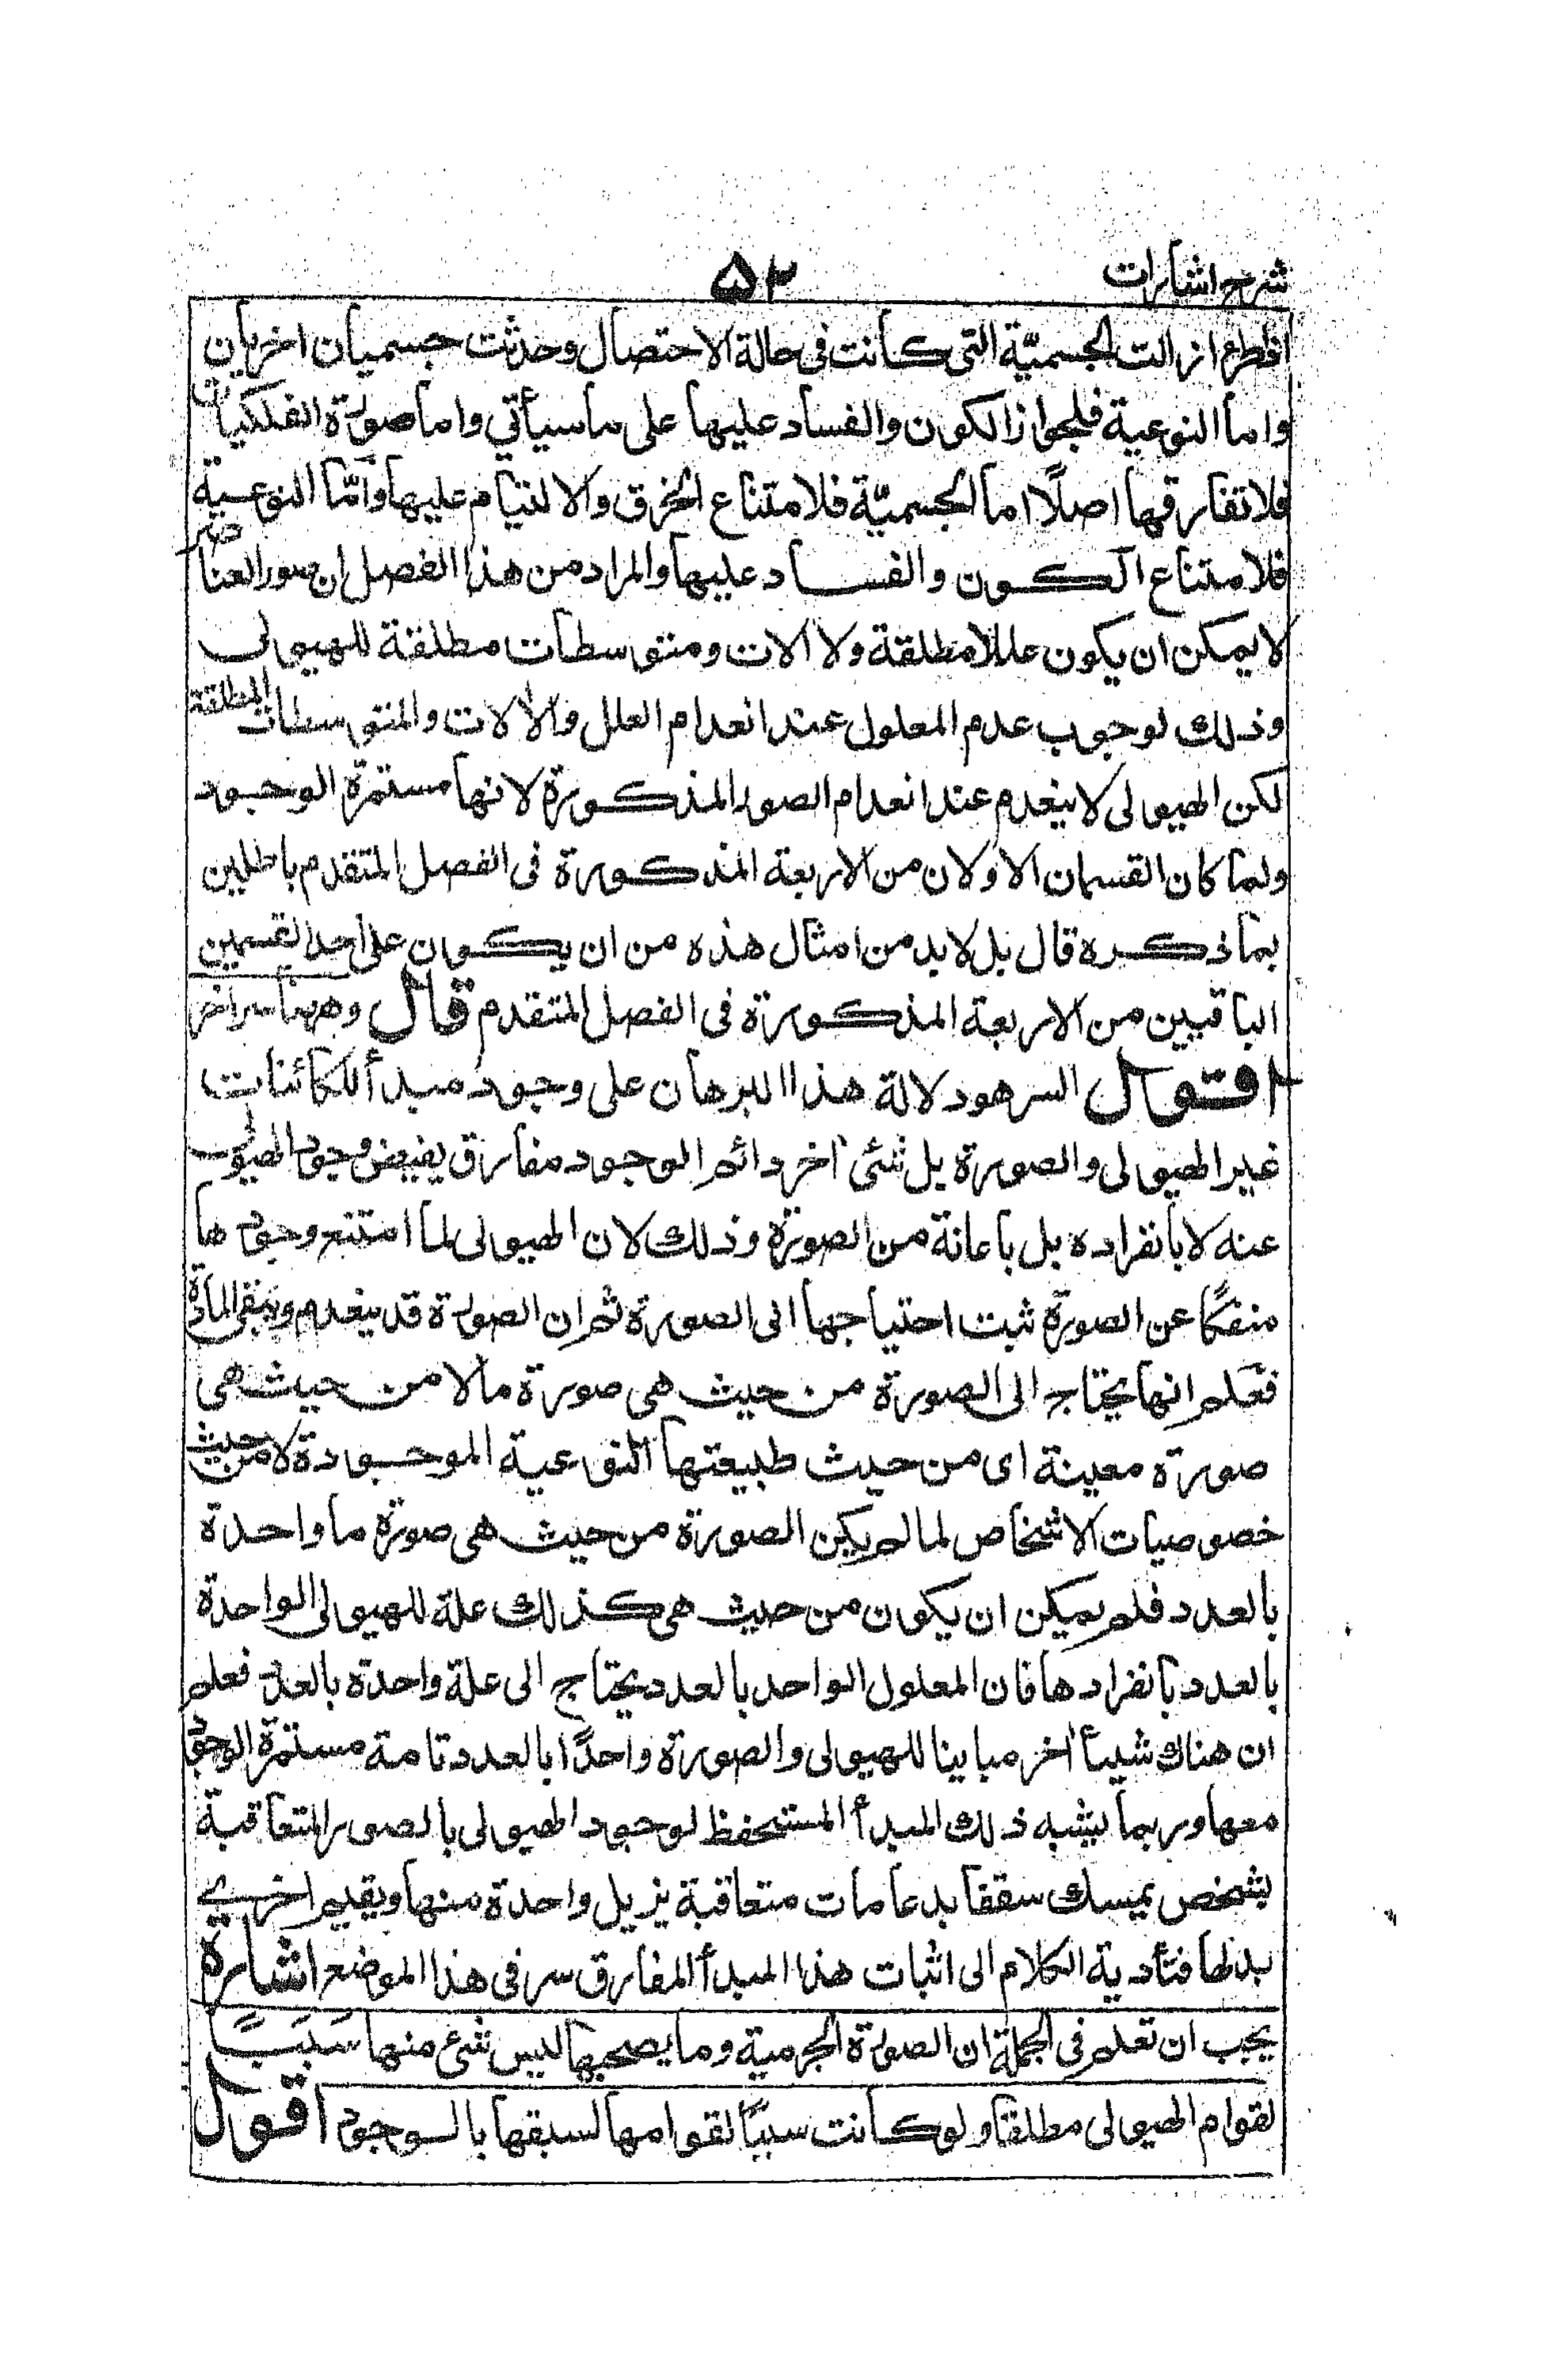 شرح اشارات
۵۲
زالت الجسميّة التى كانت فى حالة الاتصال وحدثت جسميان اخريان
واما النوعية فلجواز الكون والفساد عليها على ماسيأتي واما صورة الفلكيات
فلا تفارقها اصلًا اما الجسميّة فلامتناع الخرق والالتيام عليها وامّا النوعية
فلامتناع الكون والفساد عليها والمراد من هذا الفصل ان صور العناصر
لا يمكن ان يكون عللا مطلقة ولا الات ومتوسطات مطلقة للهيولى
وذلك لوجوب عدم المعلول عند انعدام العلل والالات والمتوسطات المطلقة
لكن الهيولى لا ينعدم عند انعدام الصور المذكورة لانها مستمرة الوجود
ولما كان القسمان الاولان من الاربعة المذكورة فى الفصل المتقدم باطلين
بما ذكره قال بل لابد من امثال هذه من ان يكون على احد القسمين
الباقيين من الاربعة المذكورة فى الفصل المتقدم قال وههنا سر اخر
اقول السر هو دلالة هذا البرهان على وجود مبدأ للكائنات
غير الهيولى والصورة بل شئ اخر دائم الوجود مفارق يفيض وجود الهيولى
عنه لا بانفراده بل باعانة من الصورة وذلك لان الهيولى لما امتنع وجودها
منفكًا عن الصورة ثبت احتياجها الى الصورة ثم ان الصورة قد ينعدم ويبقى المادة
فعلم انها يحتاج الى الصورة من حيث هى صورة ما لا من حيث هى
صورة معينة اى من حيث طبيعتها النوعية الموجودة لا من حيث
خصوصيات الاشخاص لما لم يكن الصورة من حيث هى صورة ما واحدة
بالعدد فلم يمكن ان يكون من حيث هى كذلك علة للهيولى الواحدة
بالعدد بانفرادها فان المعلول الواحد بالعدد يحتاج الى علة واحدة بالعدد فعلم
ان هناك شيئا اخر مباينا للهيولى والصورة واحدًا بالعدد تامة مستمرة الوجود
معها وربما يشبه ذلك المبدأ المستحفظ لوجود الهيولى بالصور المتعاقبة
بشخص يمسك سقفا بدعامات متعاقبة يزيل واحدة منها ويقيم اخرى
بدلها فتأدية الكلام الى اثبات هذا المبدأ المفارق سر فى هذا الموضع اشارة
يجب ان تعلم فى الجملة ان الصورة الجرمية وما يصحبها ليس شئ منها سَبَبًا
لقوام الهيولى مطلقا ولو كانت سببًا لقوامها لسبقها بالوجود اقول